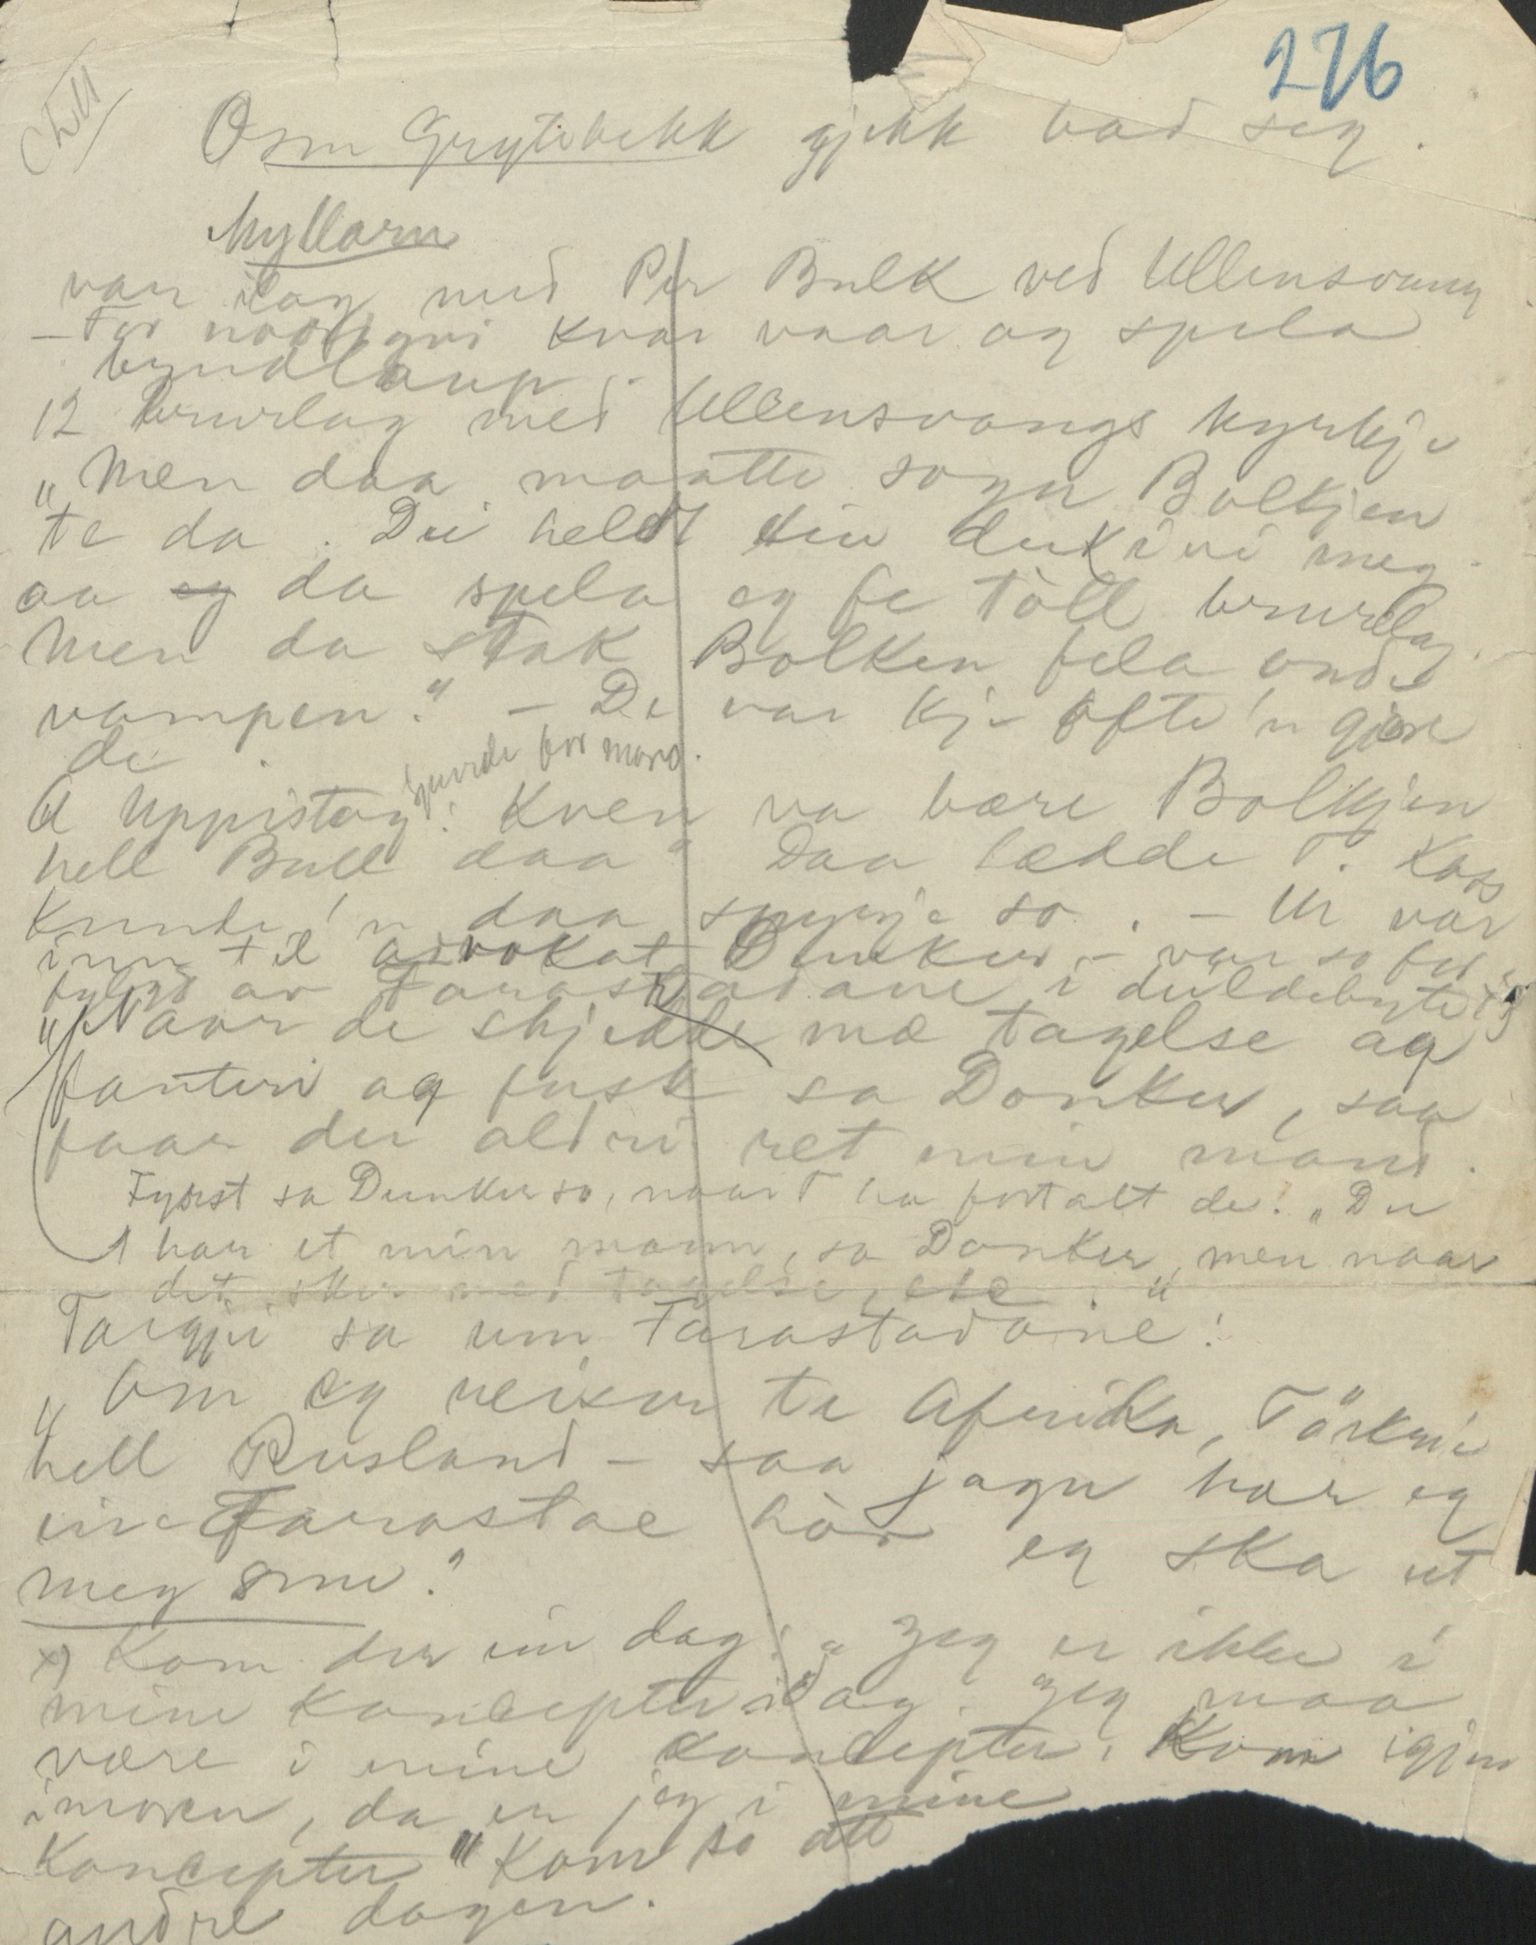 276
Osm Grytebekk gjekk bad seg.
Myllarn
var ilag med Per Bulk ved Ullensvang
– For nordigni kvar vaar og spela
bryndlaup.
12 brurlag med Ullensvangs kyrkje
„Men daa maatte sogu Bolkjen
te da. Dei heldt ein duk ivi meg
aa eg da spela eg fe tòll brurlag.
Men da stak Bolken fela under
vampen." – De var kje ofte 'n gjore
de.
A Uppistog: Kven va bære Bolkjen
spurde for moro.
hell Bull daa" Daa lædde T. Koss
kunde 'n daa spyrje so. – Ur var
inn til advokat Dunker – var so ful
fylgd av Farastadane i duldebyte
„Naar de skjedde mæ tagelse aq
fanteri aq fusk sa Donker, saa
faar du aldri ret min mand.
Fyrst sa Dunker so, naar T ha fortalt de: „Du
har et min mann, sa Donker, men naar
det sker med tagelse, etc."
Targjei sa um Farastadane:
„Om eg reiser te Aferika, Törkeri
hell Rusland – saa jagu har eg
ein Farastae hòr eg ska ut
meg snu."
x) Kom der ein dag: „Jeg er ikke i
mine Koncepter idag. Jeg maa
være i mine Koncepter. Kom igjen
imoren, da er jeg i mine
Koncepter" Kom so att
andre dagen.